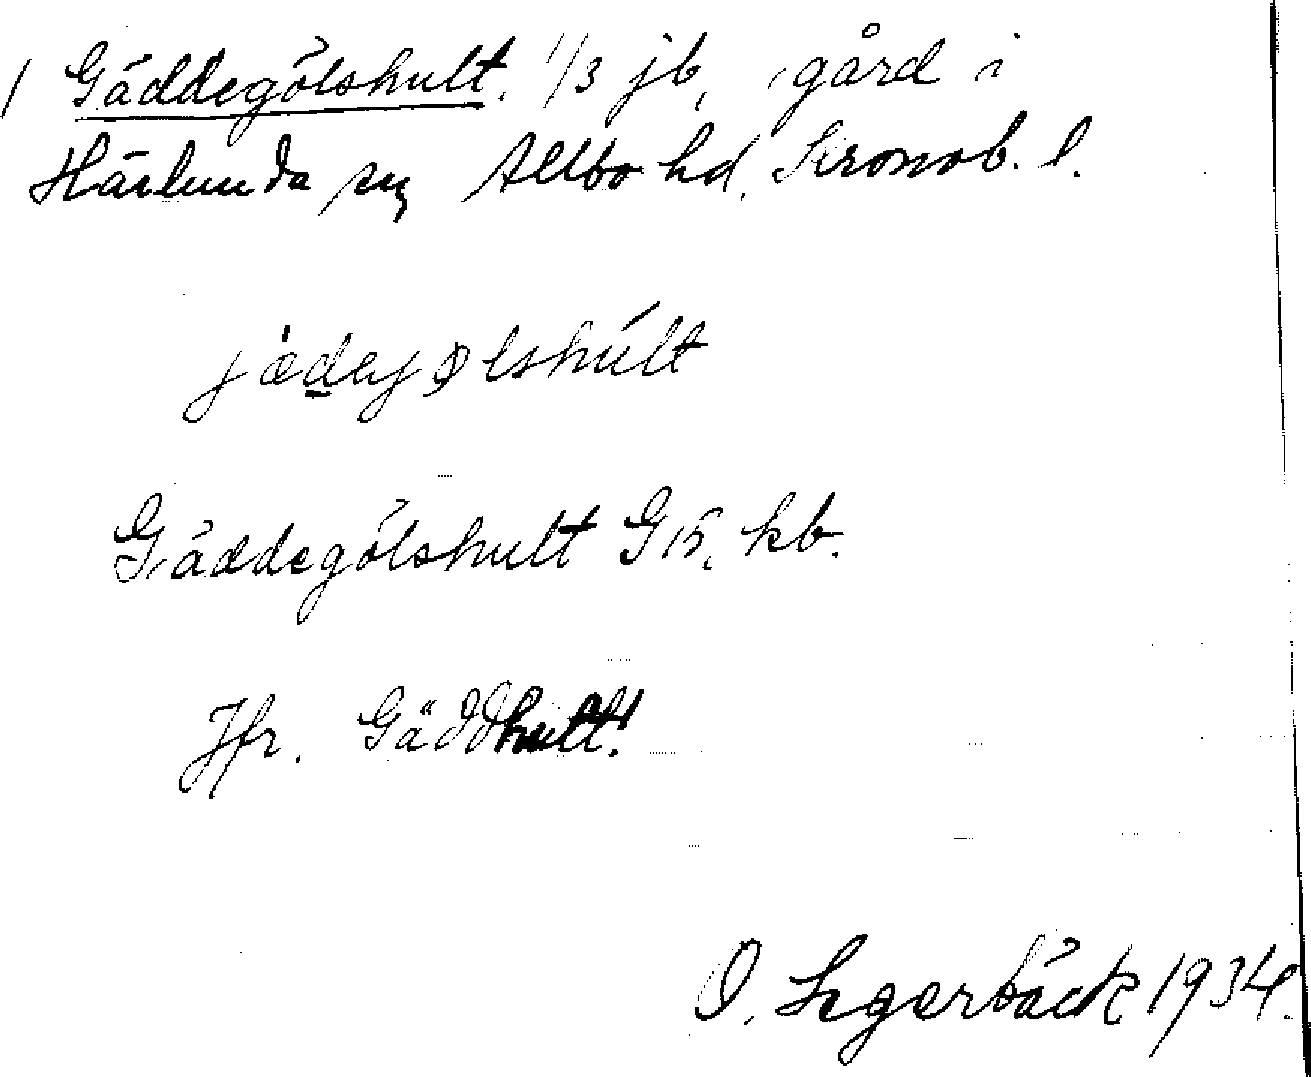 1 Gäddegölshult. 1/3 jb, gård i
Härlunda sn Allbo hd. Kronob. l.
Gäddegölshult G 15. kb.
Jfr. Gäddhult!
O. Segerbäck 1934.